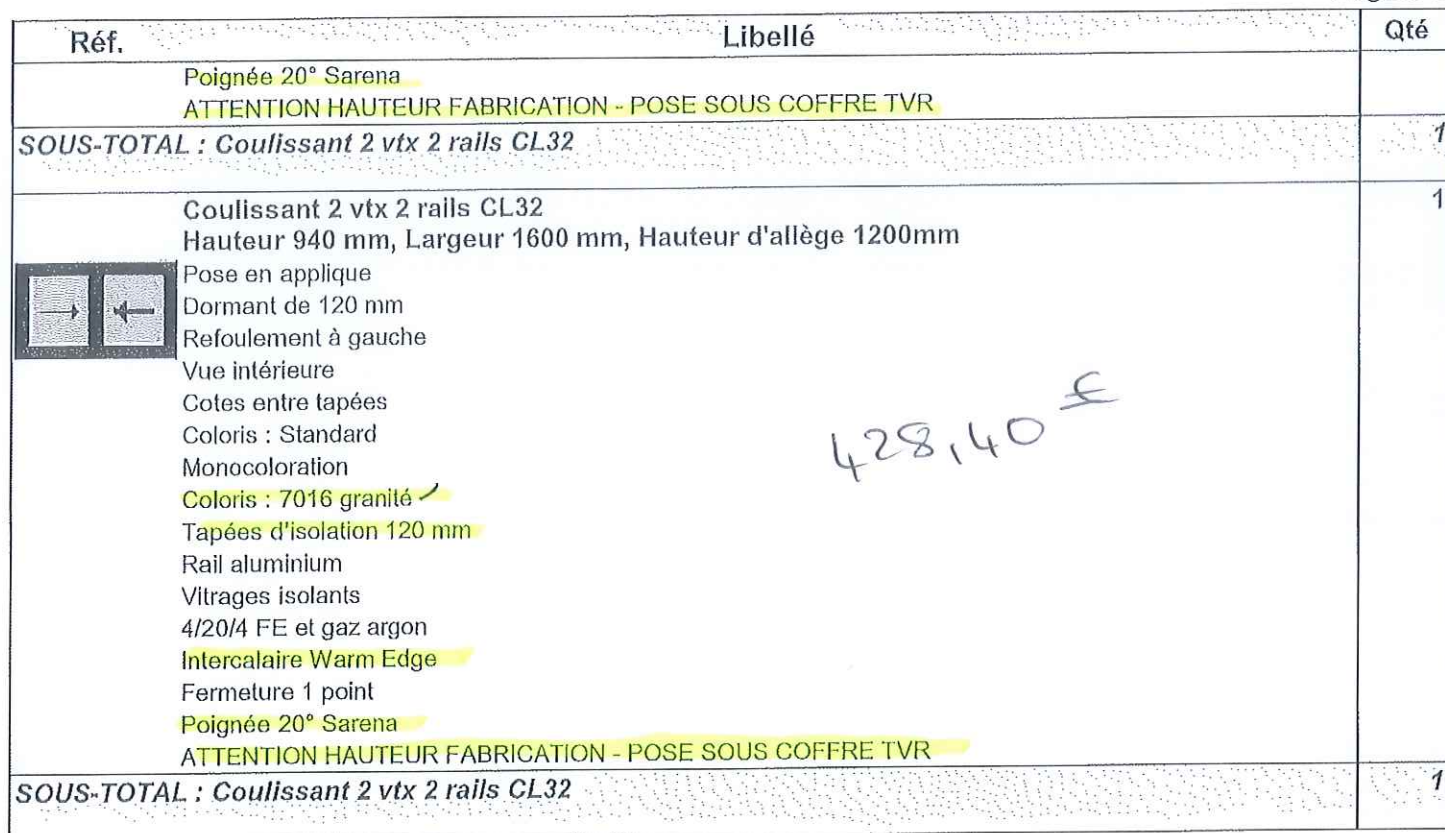 Réf. Libellé Qté
Poignée 20° Sarena
ATTENTION HAUTEUR FABRICATION - POSE SOUS COFFRE TVR
SOUS-TOTAL : Coulissant 2 vtx 2 rails CL32 1
Coulissant 2 vtx 2 rails CL32 1
Hauteur 940 mm, Largeur 1600 mm, Hauteur d'allège 1200mm
Pose en applique
Dormant de 120 mm
Refoulement à gauche
Vue intérieure
Cotes entre tapées
Coloris : Standard
428,40 €
Monocoloration
Coloris : 7016 granité
Tapées d'isolation 120 mm
Rail aluminium
Vitrages isolants
4/20/4 FE et gaz argon
Intercalaire Warm Edge
Fermeture 1 point
Poignée 20° Sarena
ATTENTION HAUTEUR FABRICATION - POSE SOUS COFFRE TVR
SOUS-TOTAL : Coulissant 2 vtx 2 rails CL32 1